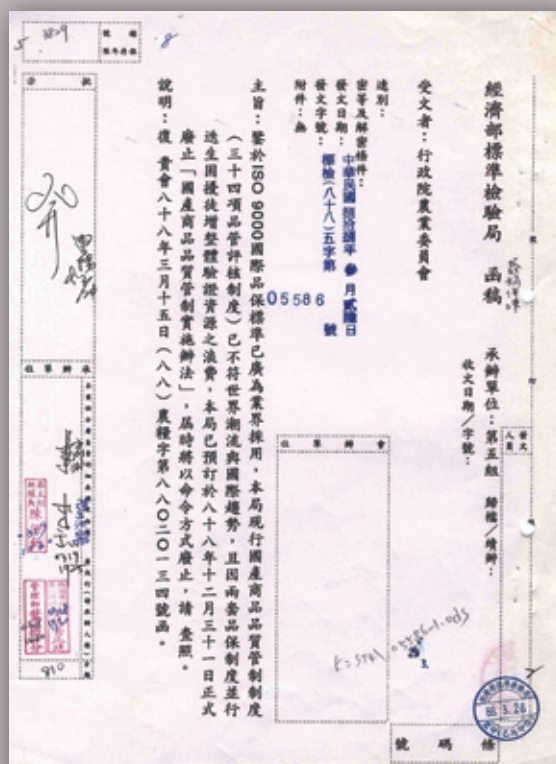 經濟部標準檢驗局　函稿
承辦單位：第五組　歸檔/續辦：
收文日期/字號：
受文者：行政院農業委員會
速別：
密等及解密條件：
發文日期：中華民國捌拾捌年 參 月貳陸日
發文字號：標檢(八十八)五字第 05586 號
附件：無
主旨：鑒於ISO 9000國際品保標準已廣為業界採用，本局現行國產商品品質管制制度
（三十四項品管評核制度）已不符世界潮流與國際趨勢，且因兩套品保制度並行
迭生困擾徒增整體驗證資源之浪費，本局已預訂於八十八年十二月三十一日正式
廢止「國產商品品質管制實施辦法」，屆時將以命令方式廢止，請 查照。
說明：復 貴會八十八年三月十五日（八八）農糧字第八八０二０一三四號函。
會辦單位
批示
承辦單位
檔號
3829
5
8
發文
人員
05586-1.ods
88. 3. 26
條碼號
810